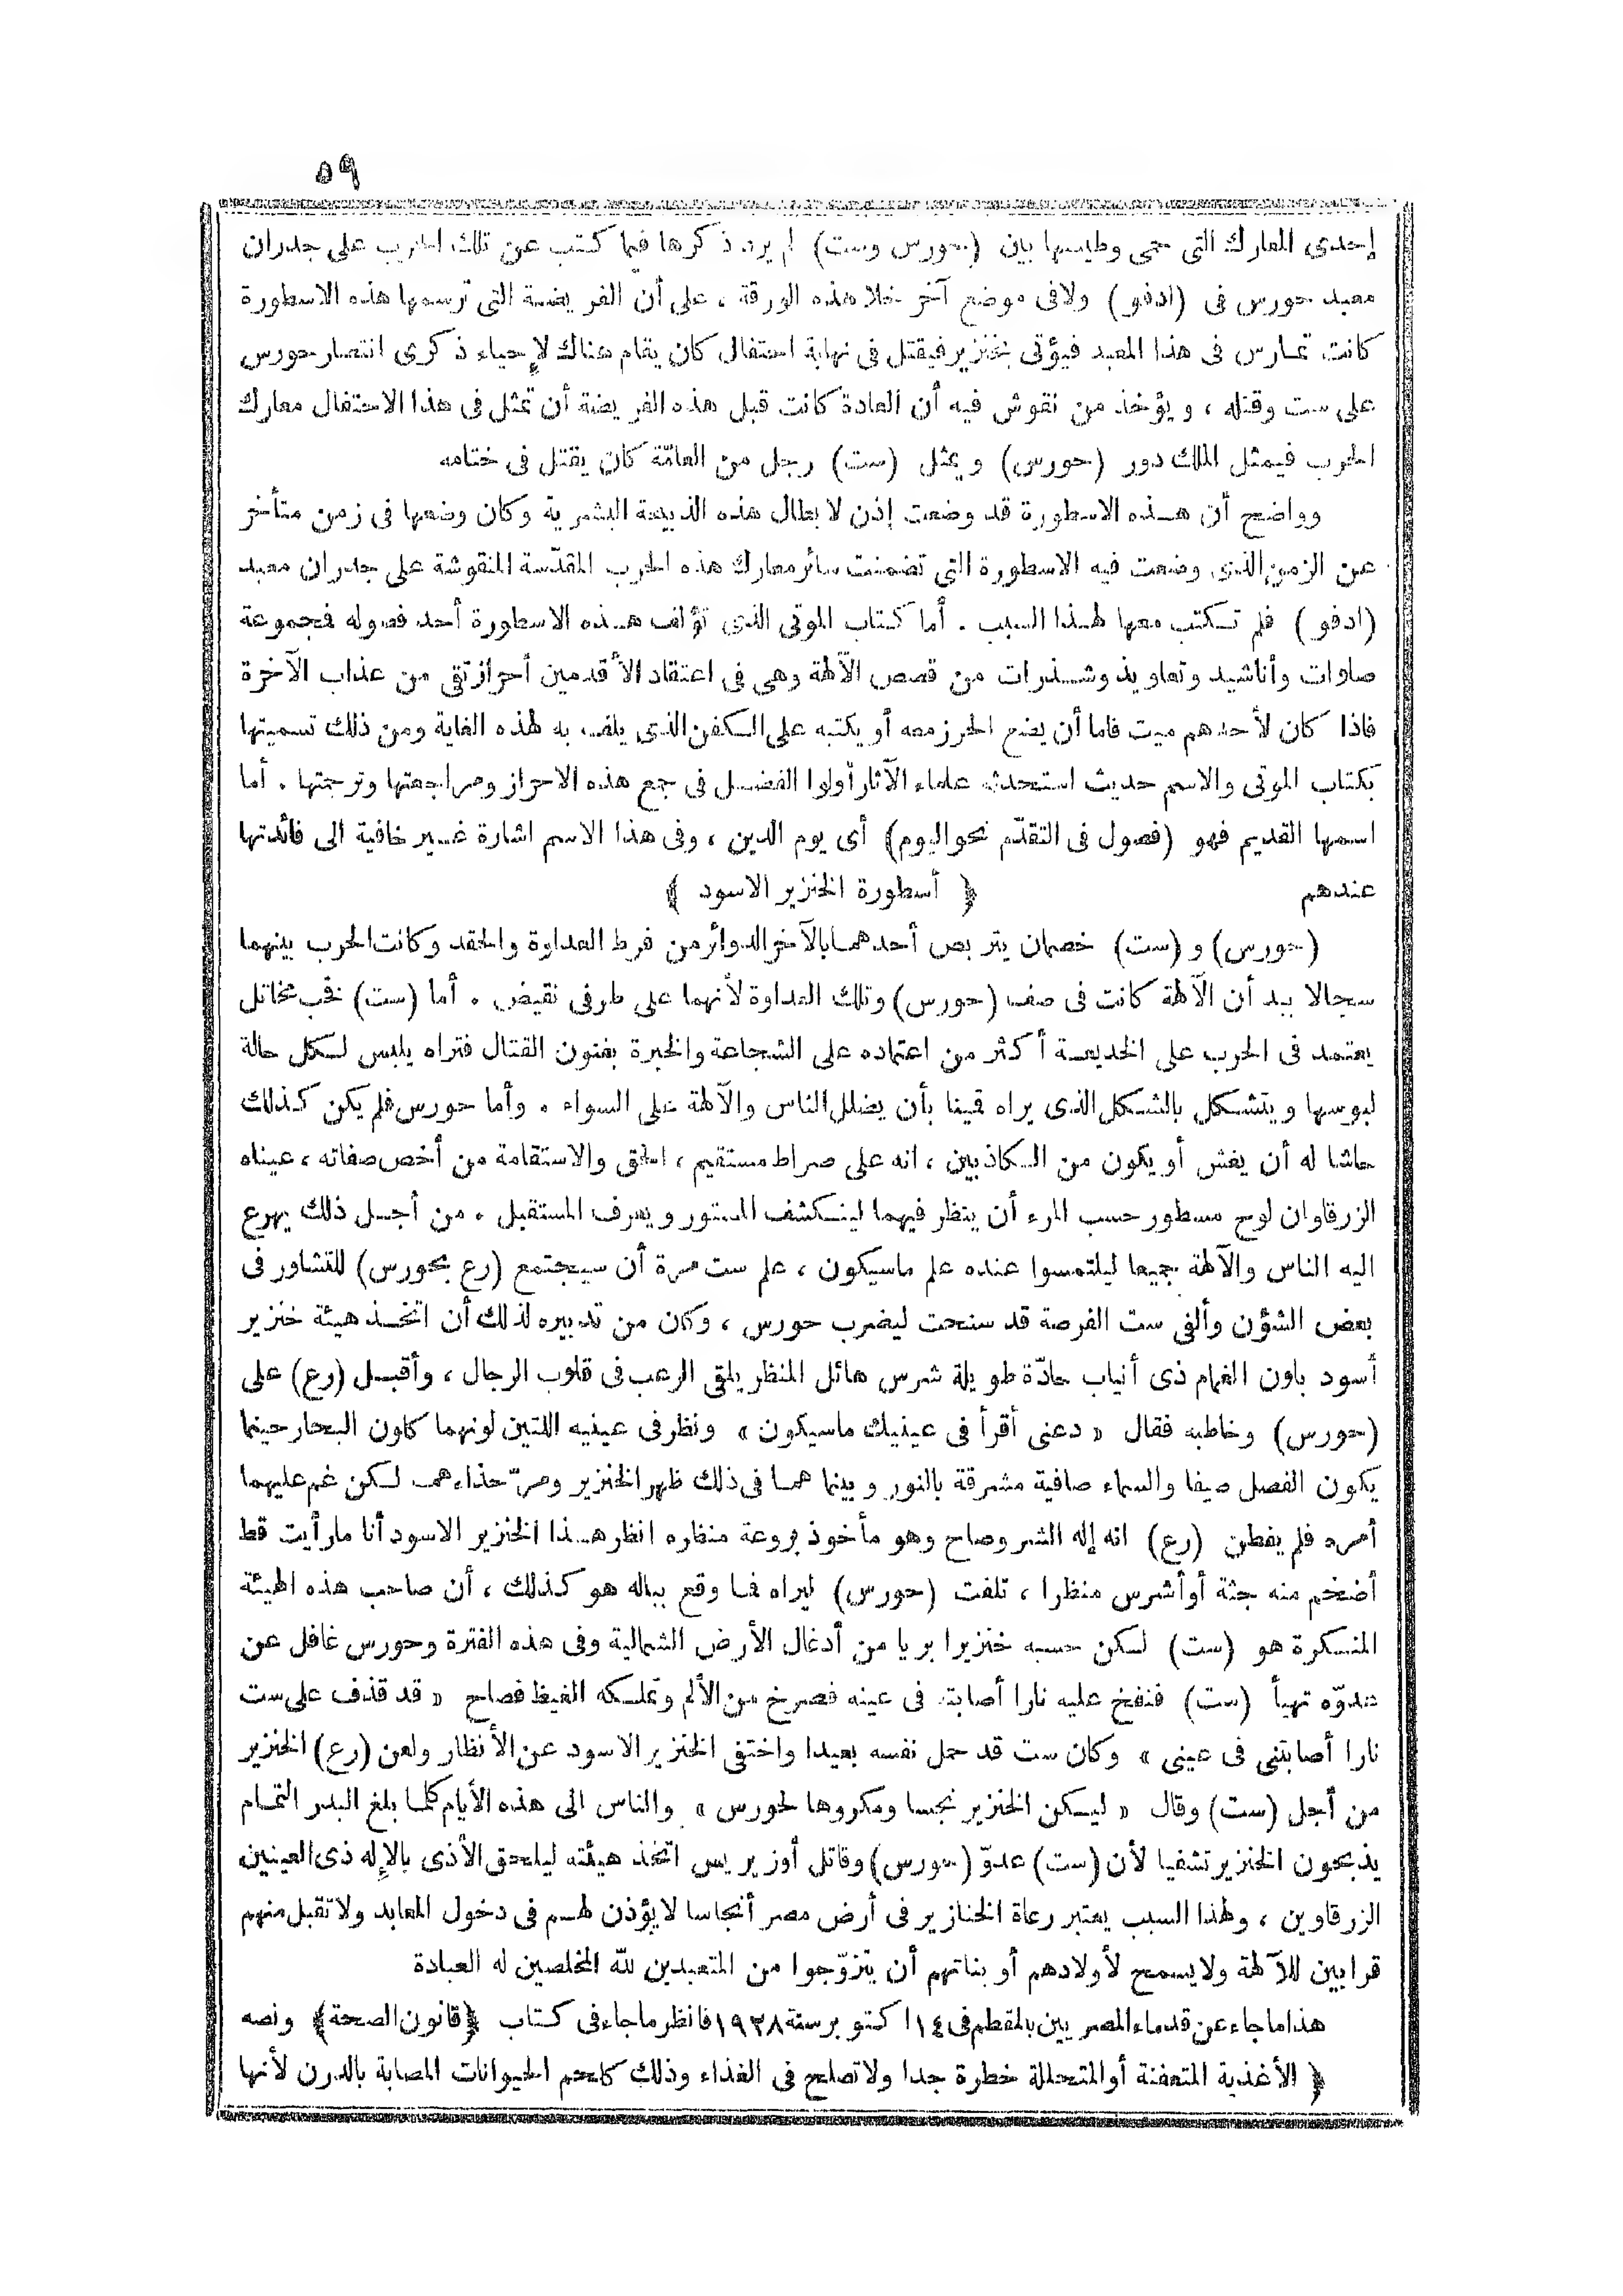 ٥٩
إحدى المعارك التى حمى وطيسها بين (حورس وست) لم يرد ذكرها فيما كتب عن تلك الحرب على جدران
معبد حورس فى (ادفو) ولافى موضع آخر خلا هذه الورقة ، على أن الفريضة التى ترسمها هذه الاسطورة
كانت تمارس فى هذا المعبد فيؤتى بخنزير فيقتل فى نهاية احتفال كان يقام هناك لإحياء ذكرى انتصار حورس
على ست وقتله ، ويؤخذ من نقوش فيه أن العادة كانت قبل هذه الفريضة أن تمثل فى هذا الاحتفال معارك
الحرب فيمثل الملك دور (حورس) ويمثل (ست) رجل من العامّة كان يقتل فى ختامه
وواضح أن هذه الاسطورة قد وضعت إذن لابطال هذه الذبيحة البشرية وكان وضعها فى زمن متأخر
عن الزمن الذى وضعت فيه الاسطورة التى تضمنت سائر معارك هذه الحرب المقدّسة المنقوشة على جدران معبد
(ادفو) فلم تكتب معها لهذا السبب . أما كتاب الموتى الذى تؤلف هذه الاسطورة أحد فصوله فمجموعة
صلوات وأناشيد وتعاويذ وشذرات من قصص الآلهة وهى فى اعتقاد الأقدمين أحراز تقى من عذاب الآخرة
فاذا كان لأحدهم ميت فاما أن يضع الحرز معه أو يكتبه على الكفن الذى يلف به لهذه الغاية ومن ذلك تسميتها
بكتاب الموتى والاسم حديث استحدثه علماء الآثار أولوا الفضل فى جمع هذه الاحراز ومراجعتها وترجمتها . أما
اسمها القديم فهو (فصول فى التقدّم نحو اليوم) أى يوم الدين ، وفى هذا الاسم اشارة غير خافية الى فائدتها
عندهم ﴿ أسطورة الخنزير الاسود ﴾
(حورس) و (ست) خصمان يتربص أحدهما بالآخر الدوائر من فرط العداوة والحقد وكانت الحرب بينهما
سجالا بيد أن الآلهة كانت فى صف (حورس) وتلك العداوة لأنهما على طرفى نقيض . أما (ست) فخب مخاتل
يعتمد فى الحرب على الخديعة أكثر من اعتماده على الشجاعة والخبرة بفنون القتال فتراه يلبس لكل حالة
لبوسها ويتشكل بالشكل الذى يراه قمينا بأن يضلل الناس والآلهة على السواء . وأما حورس فلم يكن كذلك
حاشا له أن يغش أو يكون من الكاذبين ، انه على صراط مستقيم ، الحق والاستقامة من أخص صفاته ، عيناه
الزرقاوان لوح مسطور حسب المرء أن ينظر فيهما لينكشف المستور ويعرف المستقبل . من أجل ذلك يهرع
اليه الناس والآلهة جميعا ليلتمسوا عنده علم ماسيكون ، علم ست مرة أن سيجتمع (رع بحورس) للتشاور فى
بعض الشؤن وألفى ست الفرصة قد سنحت ليضرب حورس ، وكان من تدبيره لذلك أن اتخذ هيئة خنزير
أسود بلون الغمام ذى أنياب حادّة طويلة شرس هائل المنظر يلقى الرعب فى قلوب الرجال ، وأقبل (رع) على
(حورس) وخاطبه فقال « دعنى أقرأ فى عينيك ماسيكون » ونظر فى عينيه اللتين لونهما كلون البحار حينما
يكون الفصل صيفا والسماء صافية مشرقة بالنور وبينما هما فى ذلك ظهر الخنزير ومرّ حذاءهما لكن غم عليهما
أمره فلم يفطن (رع) انه إله الشر وصاح وهو مأخوذ بروعة منظره انظر هذا الخنزير الاسود أنا مارأيت قط
أضخم منه جثة أو أشرس منظرا ، تلفت (حورس) ليراه فما وقع بباله هو كذلك ، أن صاحب هذه الهيئة
المنكرة هو (ست) لكن حسبه خنزيرا بريا من أدغال الأرض الشمالية وفى هذه الفترة وحورس غافل عن
عدوّه تهيأ (ست) فنفخ عليه نارا أصابته فى عينه فصرخ من الألم وتملكه الغيظ فصاح « قد قذف على ست
نارا أصابتنى فى عينى » وكان ست قد حمل نفسه بعيدا واختفى الخنزير الاسود عن الأنظار ولعن (رع) الخنزير
من أجل (ست) وقال « ليكن الخنزير نجسا ومكروها لحورس » والناس الى هذه الأيام كلما بلغ البدر التمام
يذبحون الخنزير تشفيا لأن (ست) عدوّ (حورس) وقاتل أوزيريس اتخذ هيئته ليلحق الأذى بالإله ذى العينين
الزرقاوين ، ولهذا السبب يعتبر رعاة الخنازير فى أرض مصر أنجاسا لايؤذن لهم فى دخول المعابد ولاتقبل منهم
قرابين للآلهة ولايسمح لأولادهم أو بناتهم أن يتزوّجوا من المتعبدين لله المخلصين له العبادة
هذا ماجاء عن قدماء المصريين بالمقطم فى ١٤ اكتوبر سنة ١٩٢٨ فانظر ماجاء فى كتاب ﴿قانون الصحة﴾ ونصه
﴿ الأغذية المتعفنة أو المتحللة خطرة جدا ولاتصلح فى الغذاء وذلك كلحم الحيوانات المصابة بالدرن لأنها